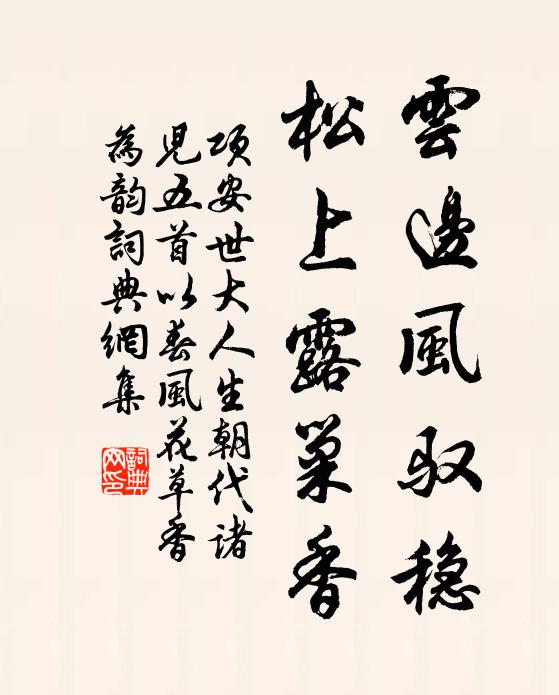 雲邊風馭稳
松上露巢香
项安世大人生朝代诸
児五首以春風花草香
為韵詞典網集
詞典网印